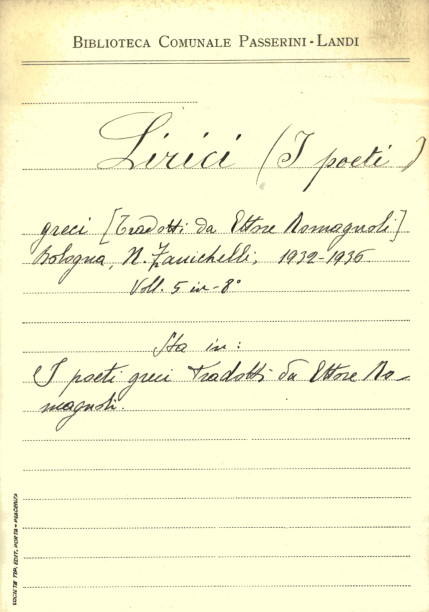 BIBLIOTECA COMUNALE PASSERINI-LANDI
Lirici (I poeti)
greci [Tradotti da Ettore Romagnoli]
Bologna, N. Zanichelli, 1932-1936.
Voll. 5 in-8°
Sta in:
I poeti greci tradotti da Ettore Ro-
magnoli.
SOCIETÀ TIP. EDIT. PORTA - PIACENZA